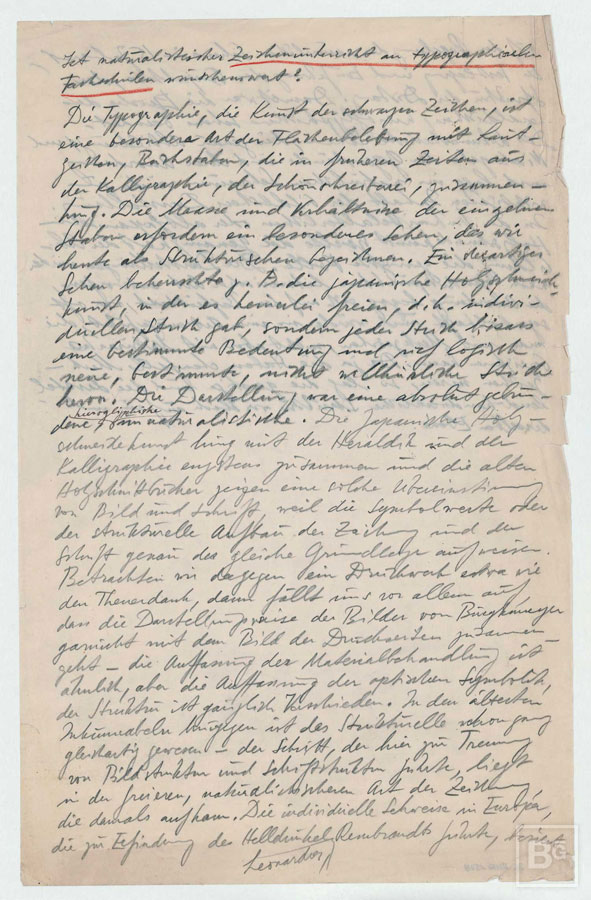 Ist naturalistischer Zeichenunterricht an typographischen
Fachschulen wünschenswert?
Die Typographie, die Kunst der schwarzen Zeichen, ist
eine besondere Art der Flächenbelebung mit Laut-
zeichen, Buchstaben, die in früheren Zeiten aus
der Kalligraphie, der Schönschreiberei, zusammen-
hing. Die Masse und Verhältnisse der einzelnen
erfordern ein besonderes Sehen, das wir
heute als Strukturschen bezeichnen. Ein derartiges
Sehen beherrschte z. B. die japanische Holzschneide-
kunst, in der es keinerlei freien, d.h. indivi-
duellen Strich gab, sondern jeder Strich
eine bestimmte Bedeutung und rief logisch
neue, bestimmte, nicht willkürliche Striche
hervor. Die Darstellung war eine absolut gebun-
dene hieroglyphische, naturalistische. Die japanische Holz-
schneidekunst hing mit der Heraldik und der
Kalligraphie engstens zusammen und die alten
Holzschnittbücher zeigen eine solche Übereinstimmung
von Bild und Schrift, weil die Symbolwerte oder
der strukturelle Aufbau der Zeichnung und der
Schrift genau die gleiche Grundlage aufweisen.
Betrachten wir dagegen ein Druckwerk etwa wie
den Theuerdank, dann fällt uns vor allem auf,
dass die Darstellungsweise der Bilder von Burgkmayer
garnicht mit dem Bild der Druckseiten zusammen-
geht – die Auffassung der Materialbehandlung ist
ähnlich, aber die Auffassung der optischen Symbolik,
der Struktur ist gänzlich verschieden. In den ältesten
Inkunabeln hingegen ist das Strukturelle schon ganz
gleichartig gewesen – der Schritt, der hier zur Trennung
von Bildstruktur und Schriftstruktur führte, liegt
in der freieren, naturalistischeren Art der Zeichnung,
die damals aufkam. Die individuelle Sehweise in Europa,
die zur Erfindung des Helldunkel Rembrandts führte,
Leonardos
BG